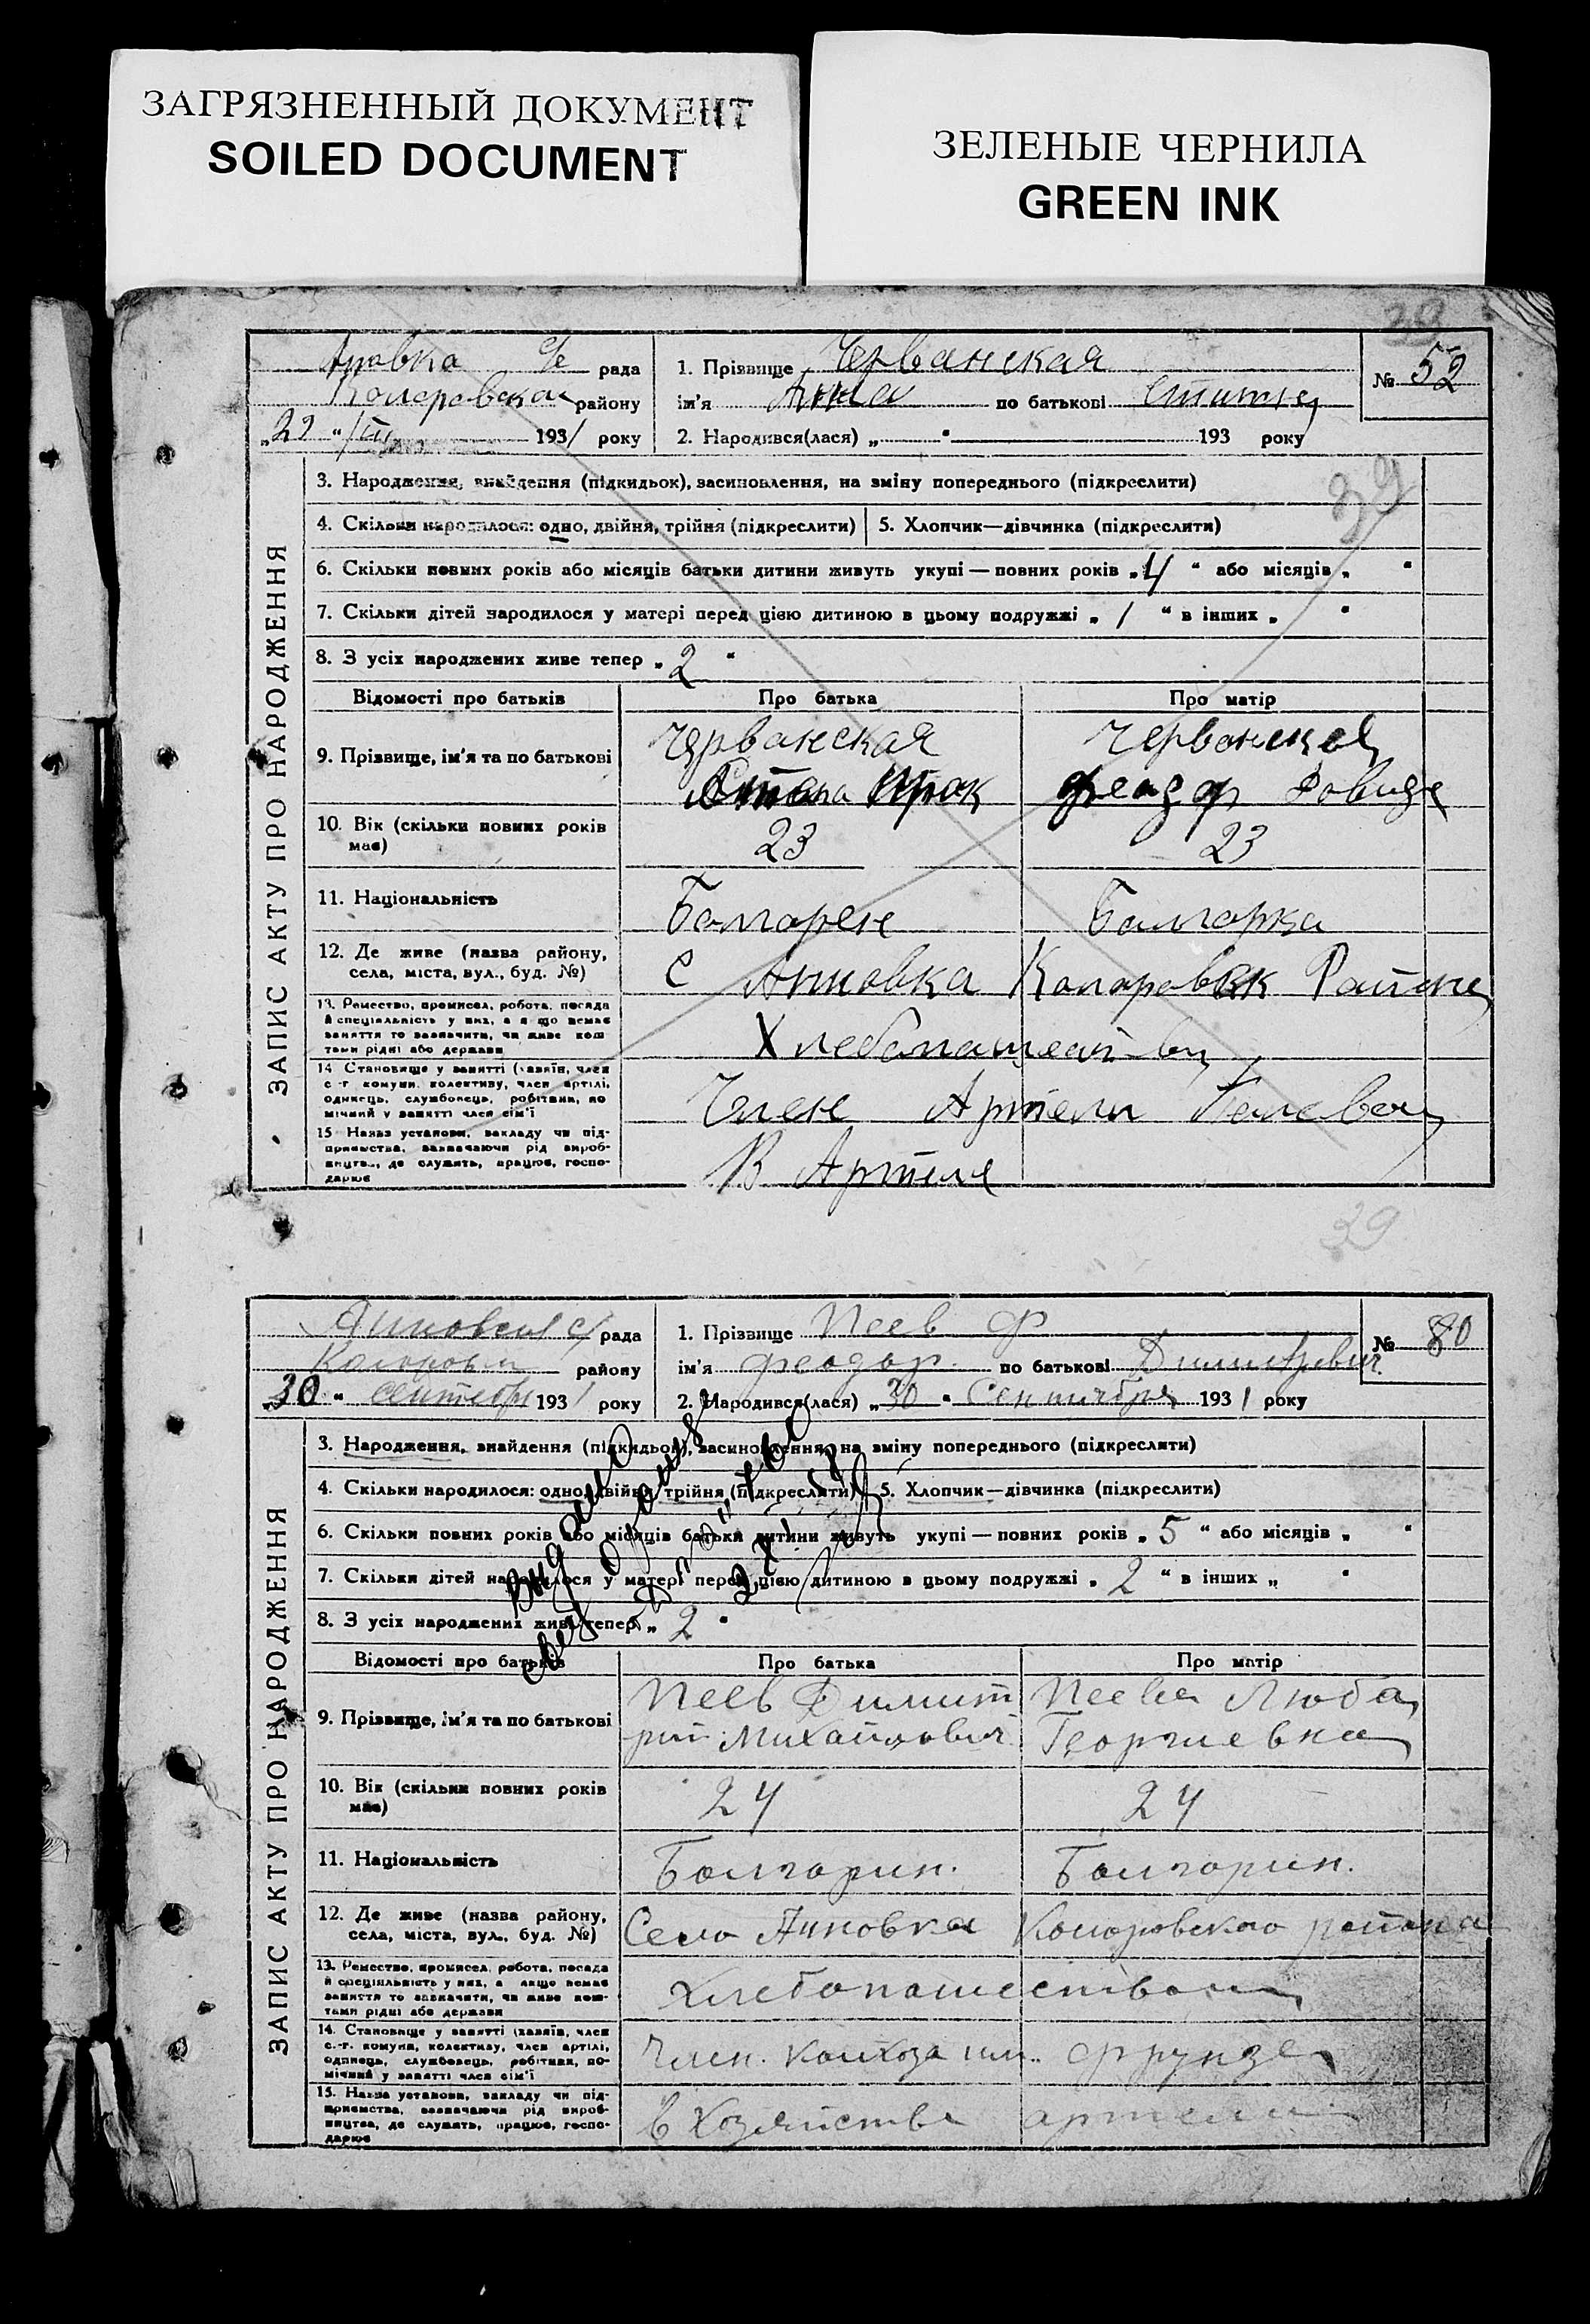 ЗАГРЯЗНЕННЫЙ ДОКУМЕНТ
SOILED DOCUMENT
ЗЕЛЕНЫЕ ЧЕРНИЛА
GREEN INK
39
рада
району
„29 “ 1931 року
1. Прізвище Черванская
ім'я Анна по батькові
2. Народився(лася) „ “ 193 року
№ 52
39
ЗАПИС АКТУ ПРО НАРОДЖЕННЯ
3. Народження, знайдення (підкидьок), засиновлення, на зміну попереднього (підкреслити)
4. Скільки народилося: одно, двійня, трійня (підкреслити)
5. Хлопчик—дівчинка (підкреслити)
6. Скільки повних років або місяців батьки дитини живуть укупі — повних років „4 “ або місяців „ “
7. Скільки дітей народилося у матері перед цією дитиною в цьому подружжі „ 1 “ в інших „ “
8. З усіх народжених живе тепер „ 2 “
Відомості про батьків
Про батька
Про матір
9. Прізвище, ім'я та по батькові
Черванская
10. Вік (скільки повних років має)
23
23
11. Національність
Болгарен
Болгарка
12. Де живе (назва району, села, міста, вул., буд. №)
С Анновка Коларовск
13. Ремество, промисел, робота, посада й спеціальність у них, а якщо немає заняття то зазначити, чи живе коштами рідні або держави
14 Становище у занятті (хазяїн, член с.-г. комуни, колективу, член артілі, одинець, службовець, робітник, помічний у занятті член сім'ї
Член Артели
15 Назва установи, закладу чи підприємства, зазначаючи рід виробництва, де служить, працює, господарює
В Артеле
39
рада
району
„30 “ 1931 року
1. Прізвище Пеев Ф
ім'я Феодор по батькові Димитревич
2. Народився(лася) „30 “ Сентября 1931 року
№ 80
ЗАПИС АКТУ ПРО НАРОДЖЕННЯ
3. Народження, знайдення (підкидьок), засиновлення, на зміну попереднього (підкреслити)
4. Скільки народилося: одно, двійня, трійня (підкреслити)
5. Хлопчик—дівчинка (підкреслити)
6. Скільки повних років або місяців батьки дитини живуть укупі — повних років „ 5 “ або місяців „ “
7. Скільки дітей народилося у матері перед цією дитиною в цьому подружжі „ 2 “ в інших „ “
8. З усіх народжених живе тепер „ 2 “
Выдано
Відомості про батьків
Про батька
Про матір
9. Прізвище, ім'я та по батькові
Пеев Димит
рий Михайлович
Пеева Люба
Георгиевна
10. Вік (скільки повних років має)
24
24
11. Національність
Болгарин.
Болгарин.
12. Де живе (назва району, села, міста, вул., буд. №)
Село Анновка Коларовского района
13. Ремество, промисел, робота, посада й спеціяльність у них, а якщо немає заняття то зазначити, чи живе коштами рідні або держави
Хлебопашеством
14. Становище у занятті (хазяїн, член с.-г. комуни, колективу, член артілі, одинець, службовець, робітник, помічний у занятті член сім'ї
Член. колхоза им. Фрунзе
15. Назва установи, закладу чи підприємства, зазначаючи рід виробництва, де служить, працює, господарює
в Хозяйстве артели